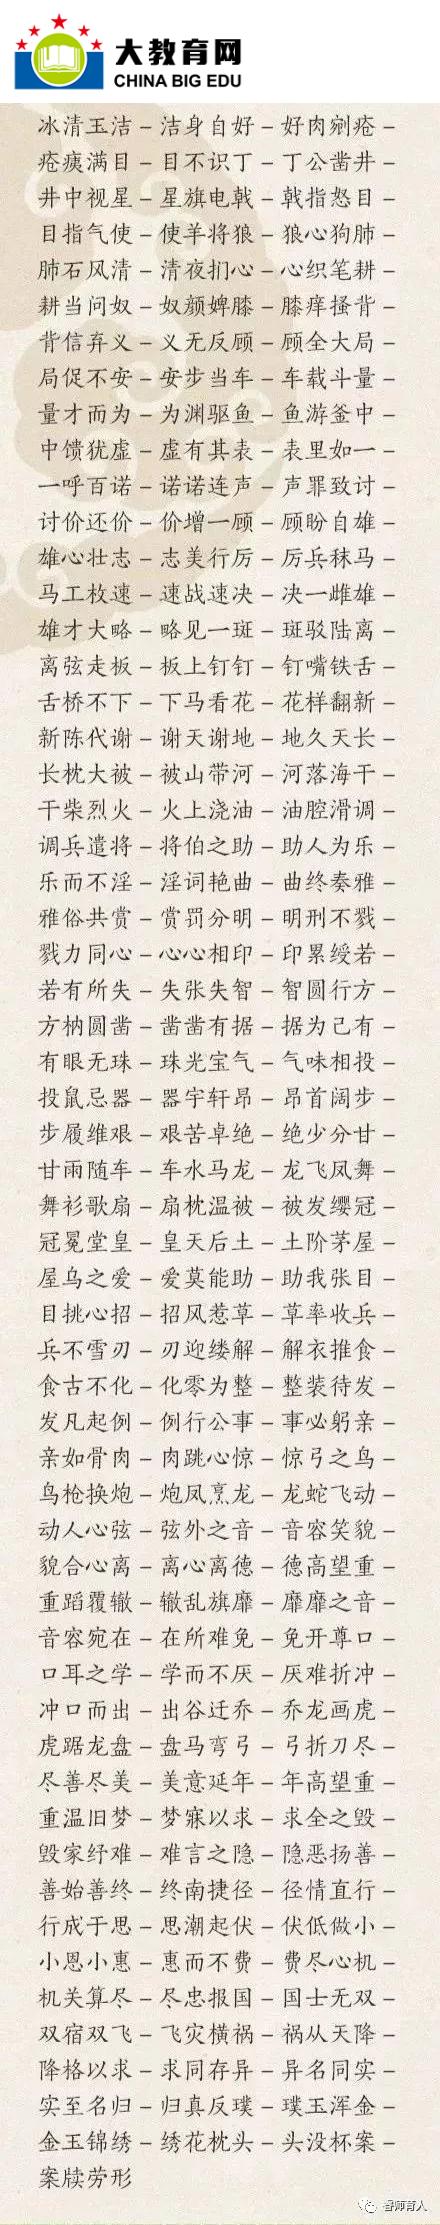 大教育网
CHINA BIG EDU
冰清玉洁－洁身自好－好肉剜疮－
疮痍满目－目不识丁－丁公凿井－
井中视星－星旗电戟－戟指怒目－
目指气使－使羊将狼－狼心狗肺－
肺石风清－清夜扪心－心织笔耕－
耕当问奴－奴颜婢膝－膝痒搔背－
背信弃义－义无反顾－顾全大局－
局促不安－安步当车－车载斗量－
量才而为－为渊驱鱼－鱼游釜中－
中馈犹虚－虚有其表－表里如一－
一呼百诺－诺诺连声－声罪致讨－
讨价还价－价增一顾－顾盼自雄－
雄心壮志－志美行厉－厉兵秣马－
马工枚速－速战速决－决一雌雄－
雄才大略－略见一斑－斑驳陆离－
离弦走板－板上钉钉－钉嘴铁舌－
舌桥不下－下马看花－花样翻新－
新陈代谢－谢天谢地－地久天长－
长枕大被－被山带河－河落海干－
干柴烈火－火上浇油－油腔滑调－
调兵遣将－将伯之助－助人为乐－
乐而不淫－淫词艳曲－曲终奏雅－
雅俗共赏－赏罚分明－明刑不戮－
戮力同心－心心相印－印累绶若－
若有所失－失张失智－智圆行方－
方枘圆凿－凿凿有据－据为己有－
有眼无珠－珠光宝气－气味相投－
投鼠忌器－器宇轩昂－昂首阔步－
步履维艰－艰苦卓绝－绝少分甘－
甘雨随车－车水马龙－龙飞凤舞－
舞衫歌扇－扇枕温被－被发缨冠－
冠冕堂皇－皇天后土－土阶茅屋－
屋乌之爱－爱莫能助－助我张目－
目挑心招－招风惹草－草率收兵－
兵不雪刃－刃迎缕解－解衣推食－
食古不化－化零为整－整装待发－
发凡起例－例行公事－事必躬亲－
亲如骨肉－肉跳心惊－惊弓之鸟－
鸟枪换炮－炮凤烹龙－龙蛇飞动－
动人心弦－弦外之音－音容笑貌－
貌合心离－离心离德－德高望重－
重蹈覆辙－辙乱旗靡－靡靡之音－
音容宛在－在所难免－免开尊口－
口耳之学－学而不厌－厌难折冲－
冲口而出－出谷迁乔－乔龙画虎－
虎踞龙盘－盘马弯弓－弓折刀尽－
尽善尽美－美意延年－年高望重－
重温旧梦－梦寐以求－求全之毁－
毁家纾难－难言之隐－隐恶扬善－
善始善终－终南捷径－径情直行－
行成于思－思潮起伏－伏低做小－
小恩小惠－惠而不费－费尽心机－
机关算尽－尽忠报国－国士无双－
双宿双飞－飞灾横祸－祸从天降－
降格以求－求同存异－异名同实－
实至名归－归真反璞－璞玉浑金－
金玉锦绣－绣花枕头－头没杯案－
案牍劳形
香师育人